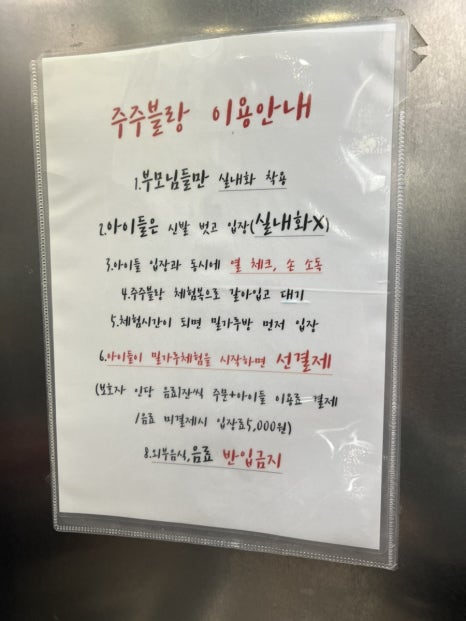 주주블랑 이용안내
1.부모님들만 실내화 착용
2.아이들은 신발 벗고 입장(실내화X)
3.아이들 입장과 동시에 열 체크, 손 소독
4.주주블랑 체험복으로 갈아입고 대기
5.체험시간이 되면 밀가루방 먼저 입장
6.아이들이 밀가루체험을 시작하면 선결제
(보호자 인당 음료1잔씩 주문+아이들 이용료 결제
/음료 미결제시 입장료5,000원)
8.외부음식,음료 반입금지